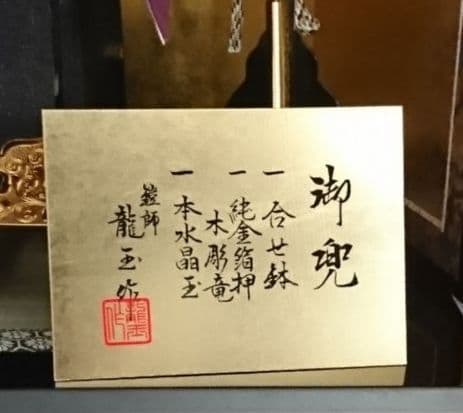 御兜
一 合せ鉢
一 純金箔押
木彫竜
一 本水晶玉
鎧師
龍玉作